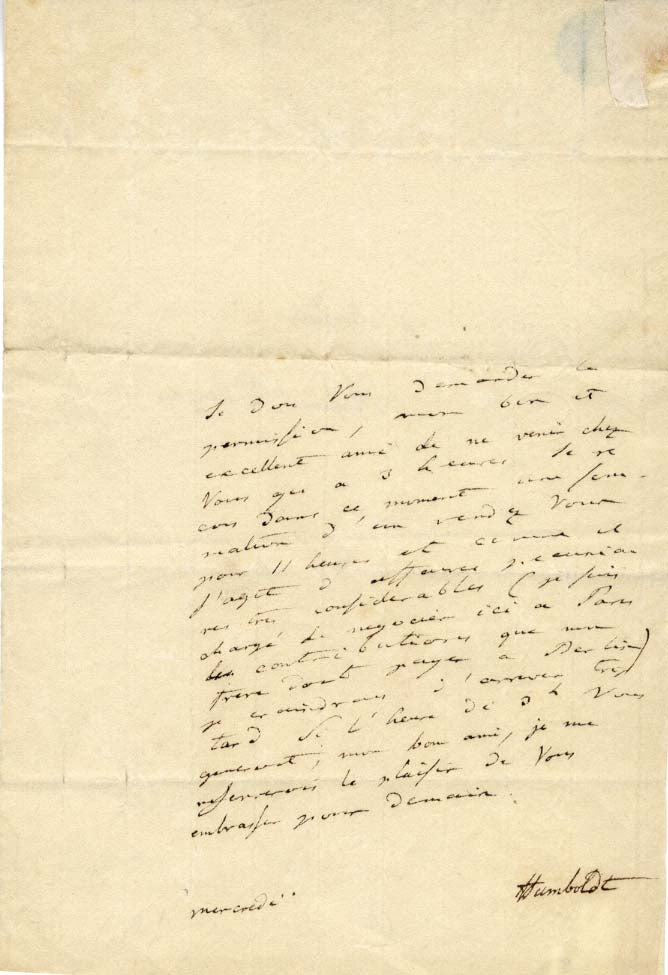 Je dois Vous demander la
permission, mon bon et
excellent ami de ne venir chez
Vous qu'a 3 heures. Je re
cois dans ce moment une fem-
nation d'un rendez Vous
pour 11 heures et comme il
s'agit d'affaires pecuniai
res très considérables (je suis
chargé de negocier ici a Paris
les contributions que mon
frere doit payer a Berlin)
je craindrois d'arriver trop
tard Si l'heure de 3 h Vous
generoit, mon bon ami, je me
reserverois le plaisir de Vous
embrasser pour demain.
Humboldt
mercredi